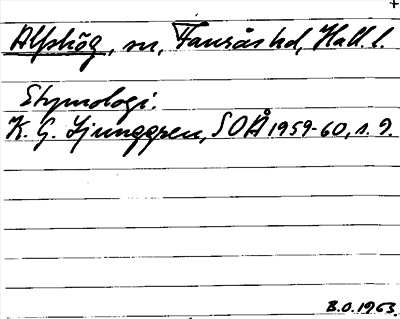 +
Alfshög, sn, Faurås hd, Hall. l.
Etymologi:
K. G. Ljunggren, SOÅ 1959-60, s. 9.
B.O. 1963.